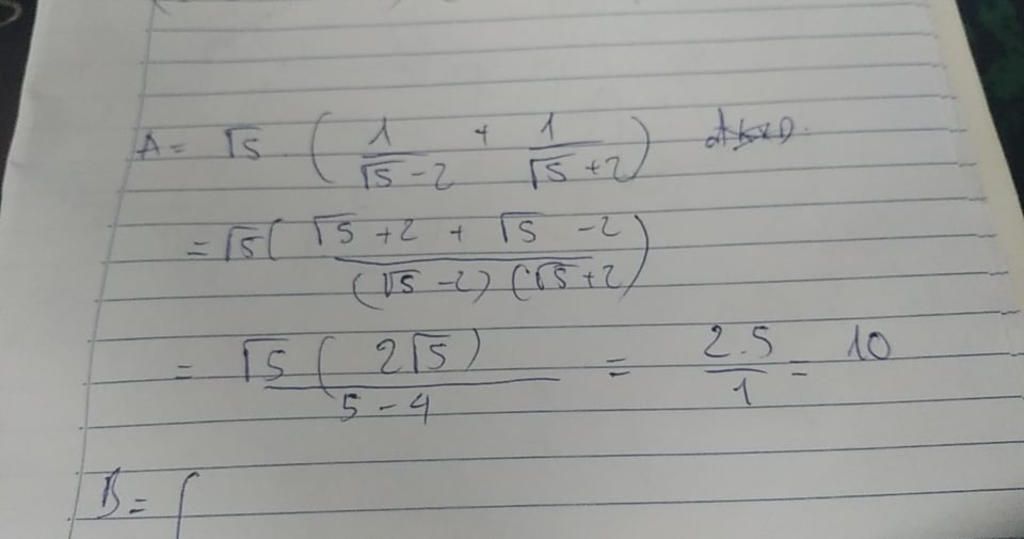 A = √5 . ( 1/(√5 - 2) + 1/(√5 + 2) )
= √5 ( (√5 + 2 + √5 - 2) / ((√5 - 2) (√5 + 2)) )
= √5 ( 2√5 ) / (5 - 4) = 2.5 / 1 = 10
B = (